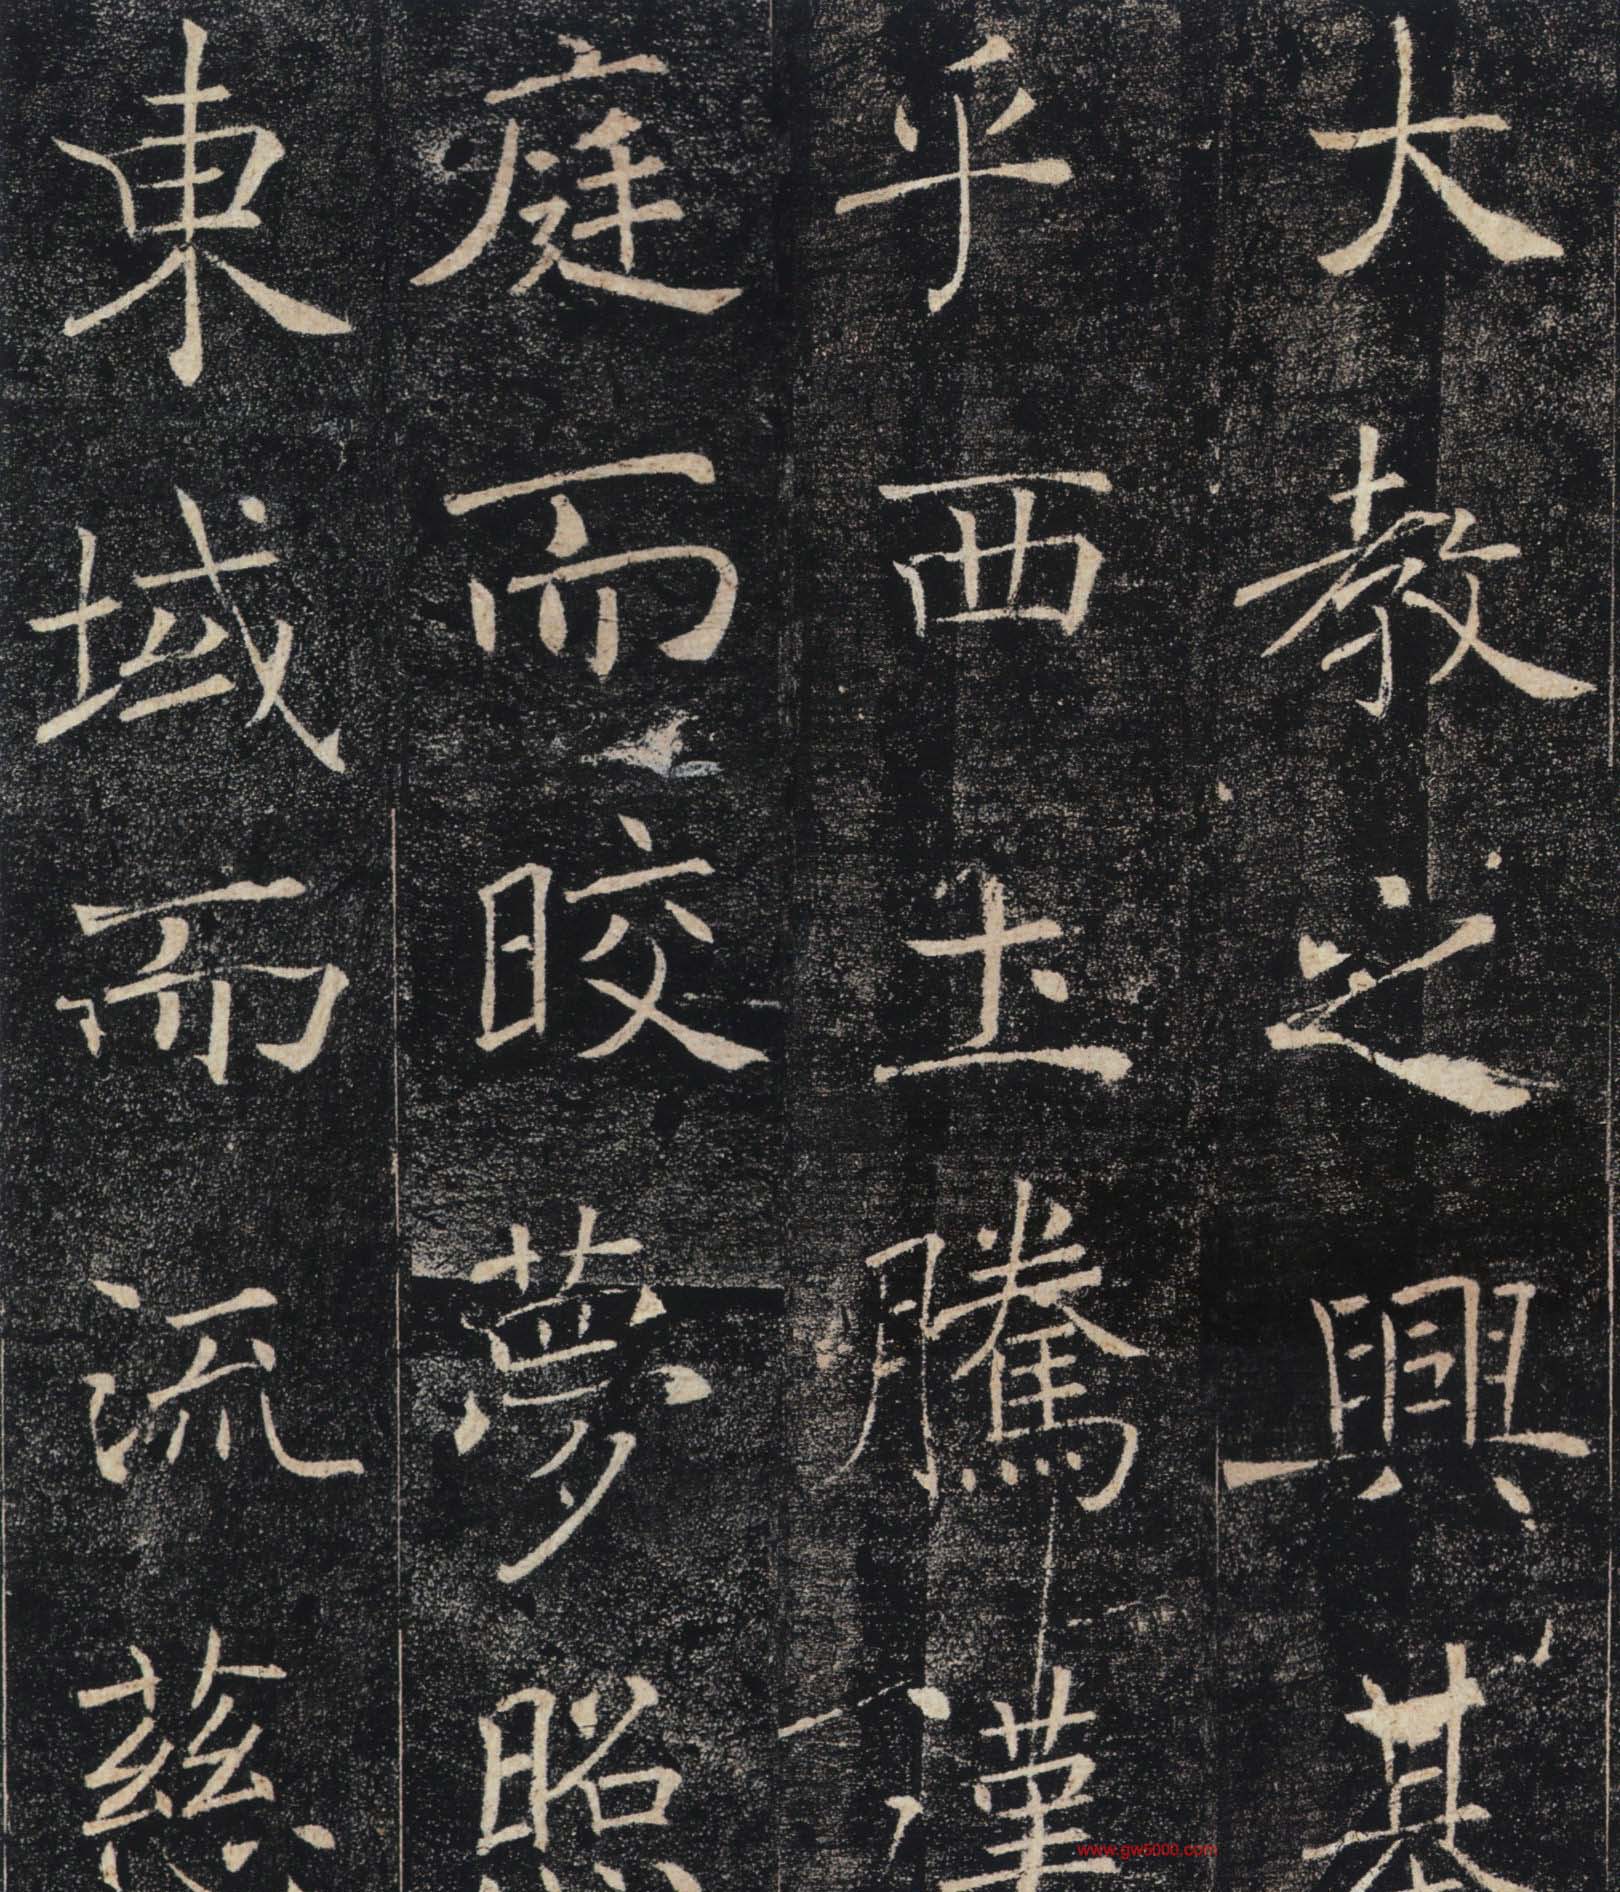 大教之興基
乎西土騰漢
庭而皎夢照
東域而流慈
www.gw5000.com